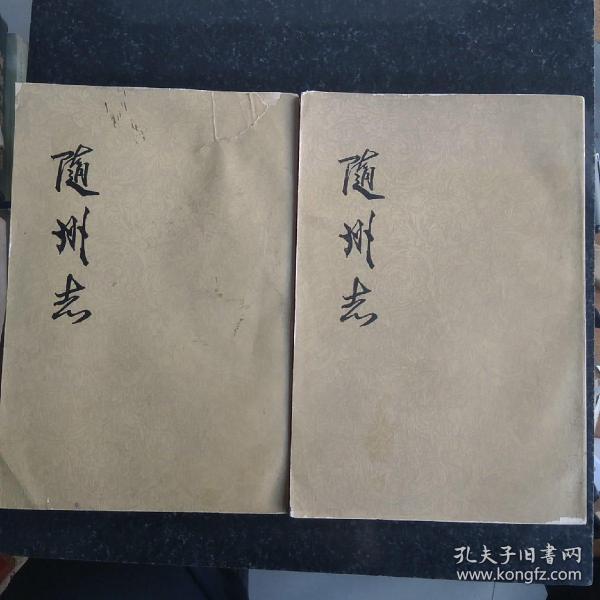 隨州志
隨州志
孔夫子旧書网
www.kongfz.com